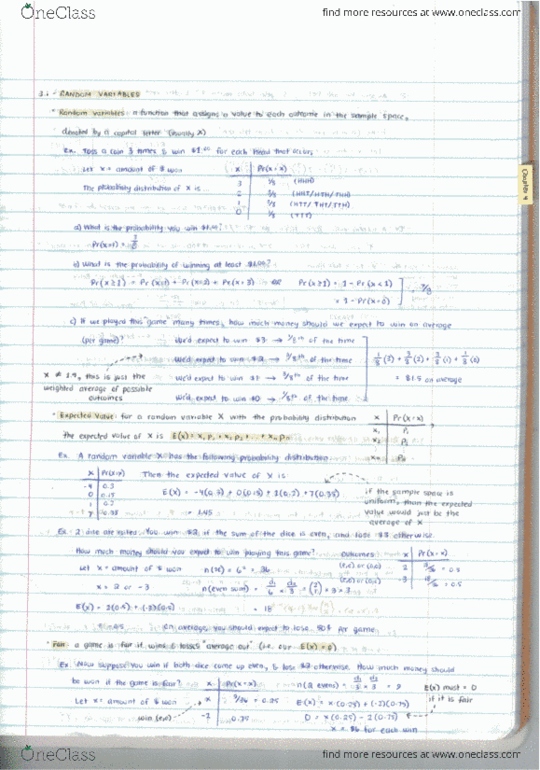 OneClass
find more resources at www.oneclass.com
3.1 - RANDOM VARIABLES
Chapter 4
• Random variables: a function that assigns a value to each outcome in the sample space,
denoted by a capital letter (usually X)
Ex. Toss a coin 3 times & win $1.00 for each head that occurs,
Let X = amount of $ won
The probability distribution of X is
x Pr(X=x)
3 1/8 (HHH)
2 3/8 (HHT/HTH/THH)
1 3/8 (HTT/THT/TTH)
0 1/8 (TTT)
a) What is the probability you win $1.00?
Pr(X=1) = 3/8
b) What is the probability of winning at least $1.00?
Pr(X≥1) = Pr(X=1) + Pr(X=2) + Pr(X=3) or Pr(X≥1) = 1 - Pr(X<1)
= 1 - Pr(X=0)
= 7/8
c) If we played this game many times, how much money should we expect to win on average
(per game)?
We'd expect to win $3 → 1/8th of the time
We'd expect to win $2 → 3/8th of the time
We'd expect to win $1 → 3/8th of the time
We'd expect to win $0 → 1/8th of the time
1/8 (3) + 3/8 (2) + 3/8 (1) + 1/8 (0)
= $1.5 on average
X ≠ 1.5, this is just the
weighted average of possible
outcomes
• Expected Value: for a random variable X with the probability distribution
x Pr(X=x)
x₁ p₁
x₂ p₂
xₙ pₙ
the expected value of X is E(X) = x₁p₁ + x₂p₂ + ... + xₙpₙ
Ex. A random variable X has the following probability distribution
x Pr(X=x)
-4 0.3
0 0.15
1 0.2
7 0.35
Then the expected value of X is
E(X) = -4(0.3) + 0(0.15) + 1(0.2) + 7(0.35)
= 1.45
if the sample space is
uniform, then the expected
value would just be the
average of X
Ex. 2 dice are rolled. You win $2 if the sum of the dice is even, and lose $3 otherwise.
How much money should you expect to win playing this game?
Let X = amount of $ won
X = 2 or -3
n(S) = 6² = 36
n(even sum) =
= 18
Outcomes
(e,e) or (o,o)
(e,o) or (o,e)
x Pr(X=x)
2 18/36 = 0.5
-3 18/36 = 0.5
E(X) = 2(0.5) + (-3)(0.5)
On average, you should expect to lose 50¢ per game
• Fair: a game is fair if wins & losses "average out" (i.e. our E(X) = 0)
Ex. Now suppose you win if both dice come up even, & lose $2 otherwise. How much money should
be won if the game is fair?
Let X = amount of $ won
x Pr(X=x)
x 9/36 = 0.25
-2 0.75
win (e,e)
n(2 evens) = 3 × 3 = 9
E(X) = x(0.25) + (-2)(0.75)
0 = x(0.25) - 2(0.75)
x = $6 for each win
E(X) must = 0
if it is fair
OneClass
find more resources at www.oneclass.com